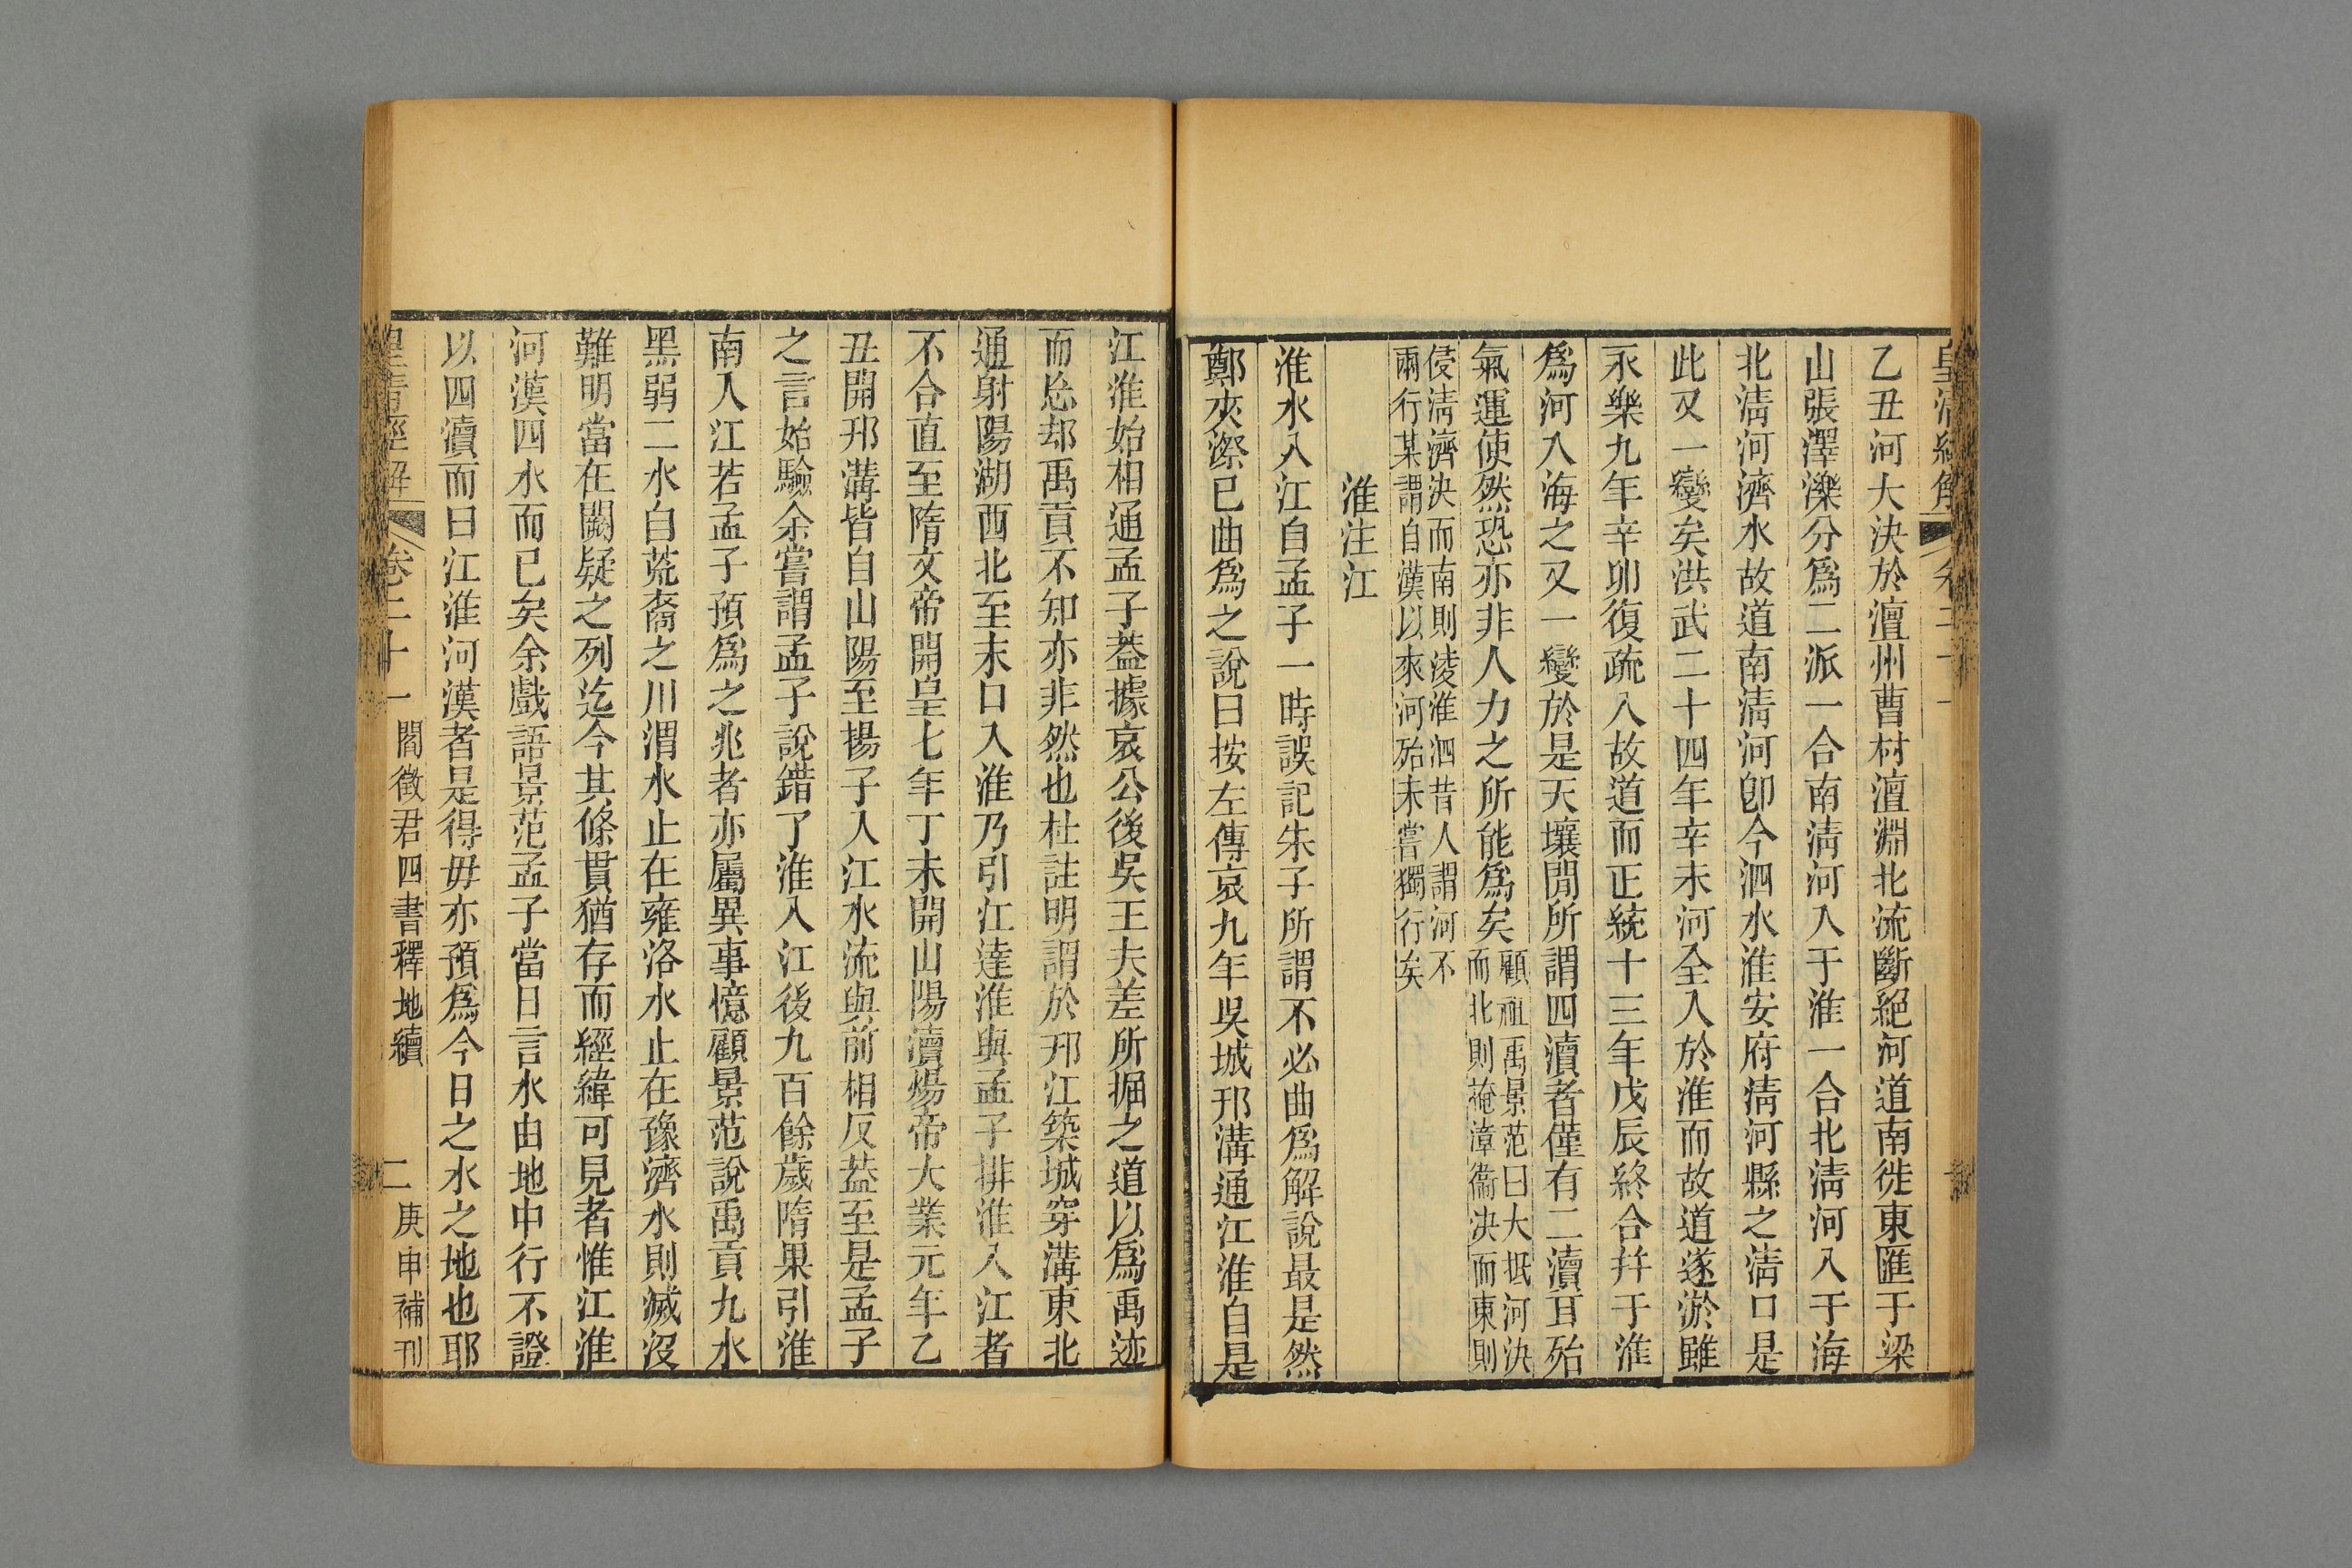 皇清經解 卷二十一
乙丑河大決於澶州曹村澶淵北流斷絕河道南徙東匯于梁
山張澤濼分爲二派一合南淸河入于淮一合北淸河入于海
北淸河濟水故道南淸河卽今泗水淮安府淸河縣之淸口是
此又一變矣洪武二十四年辛未河全入於淮而故道遂淤雖
永樂九年辛卯復疏入故道而正統十三年戊辰終合并于淮
爲河入海之又一變於是天壤閒所謂四瀆者僅有二瀆耳殆
氣運使然恐亦非人力之所能爲矣
顧祖禹景范曰大抵河決
而北則掩漳衞決而東則
侵淸濟決而南則淩淮泗昔人謂河不
兩行某謂自漢以來河殆未嘗獨行矣
淮注江
淮水入江自孟子一時誤記朱子所謂不必曲爲解說最是然
鄭夾漈已曲爲之說曰按左傳哀九年吳城邗溝通江淮自是
江淮始相通孟子葢據哀公後吳王夫差所掘之道以爲禹迹
而忘却禹貢不知亦非然也杜註明謂於邗江築城穿溝東北
通射陽湖西北至末口入淮乃引江達淮與孟子排淮入江者
不合直至隋文帝開皇七年丁未開山陽瀆煬帝大業元年乙
丑開邗溝皆自山陽至揚子入江水流與前相反葢至是孟子
之言始驗余嘗謂孟子說錯了淮入江後九百餘歲隋果引淮
南入江若孟子預爲之兆者亦屬異事憶顧景范說禹貢九水
黑弱二水自荒裔之川渭水止在雍洛水止在豫濟水則滅沒
難明當在闕疑之列迄今其條貫猶存而經緯可見者惟江淮
河漢四水而已矣余戲語景范孟子當日言水由地中行不證
以四瀆而曰江淮河漢者是得毋亦預爲今日之水之地也耶
皇淸經解 卷二十一 閻徵君四書釋地續 二 庚申補刊